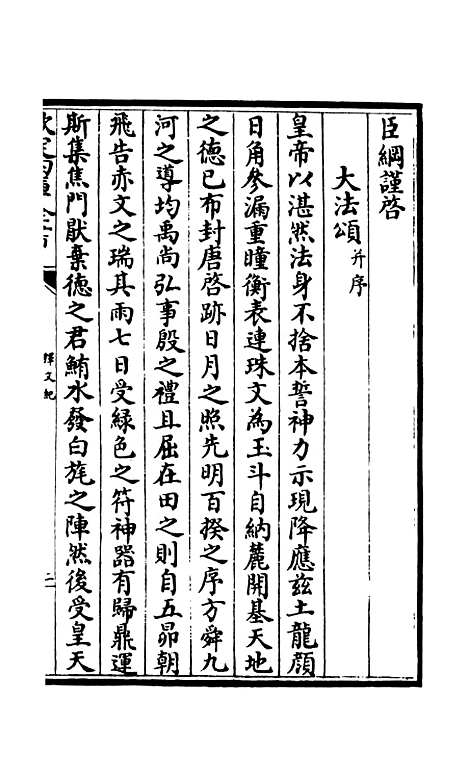 臣綱謹啓
大法頌并序
皇帝以湛然法身不捨本誓神力示現降應兹土龍顔
日角參漏重瞳衡表連珠文為玉斗自納麓開基天地
之德已布封唐啓跡日月之照先明百揆之序方舜九
河之導均禹尚弘事殷之禮且屈在田之則自五昴朝
飛告赤文之瑞其雨七日受緑色之符神器有歸鼎運
斯集焦門猒棄德之君鮪水發白旄之陣然後受皇天
欽定四庫全書
釋文紀
二